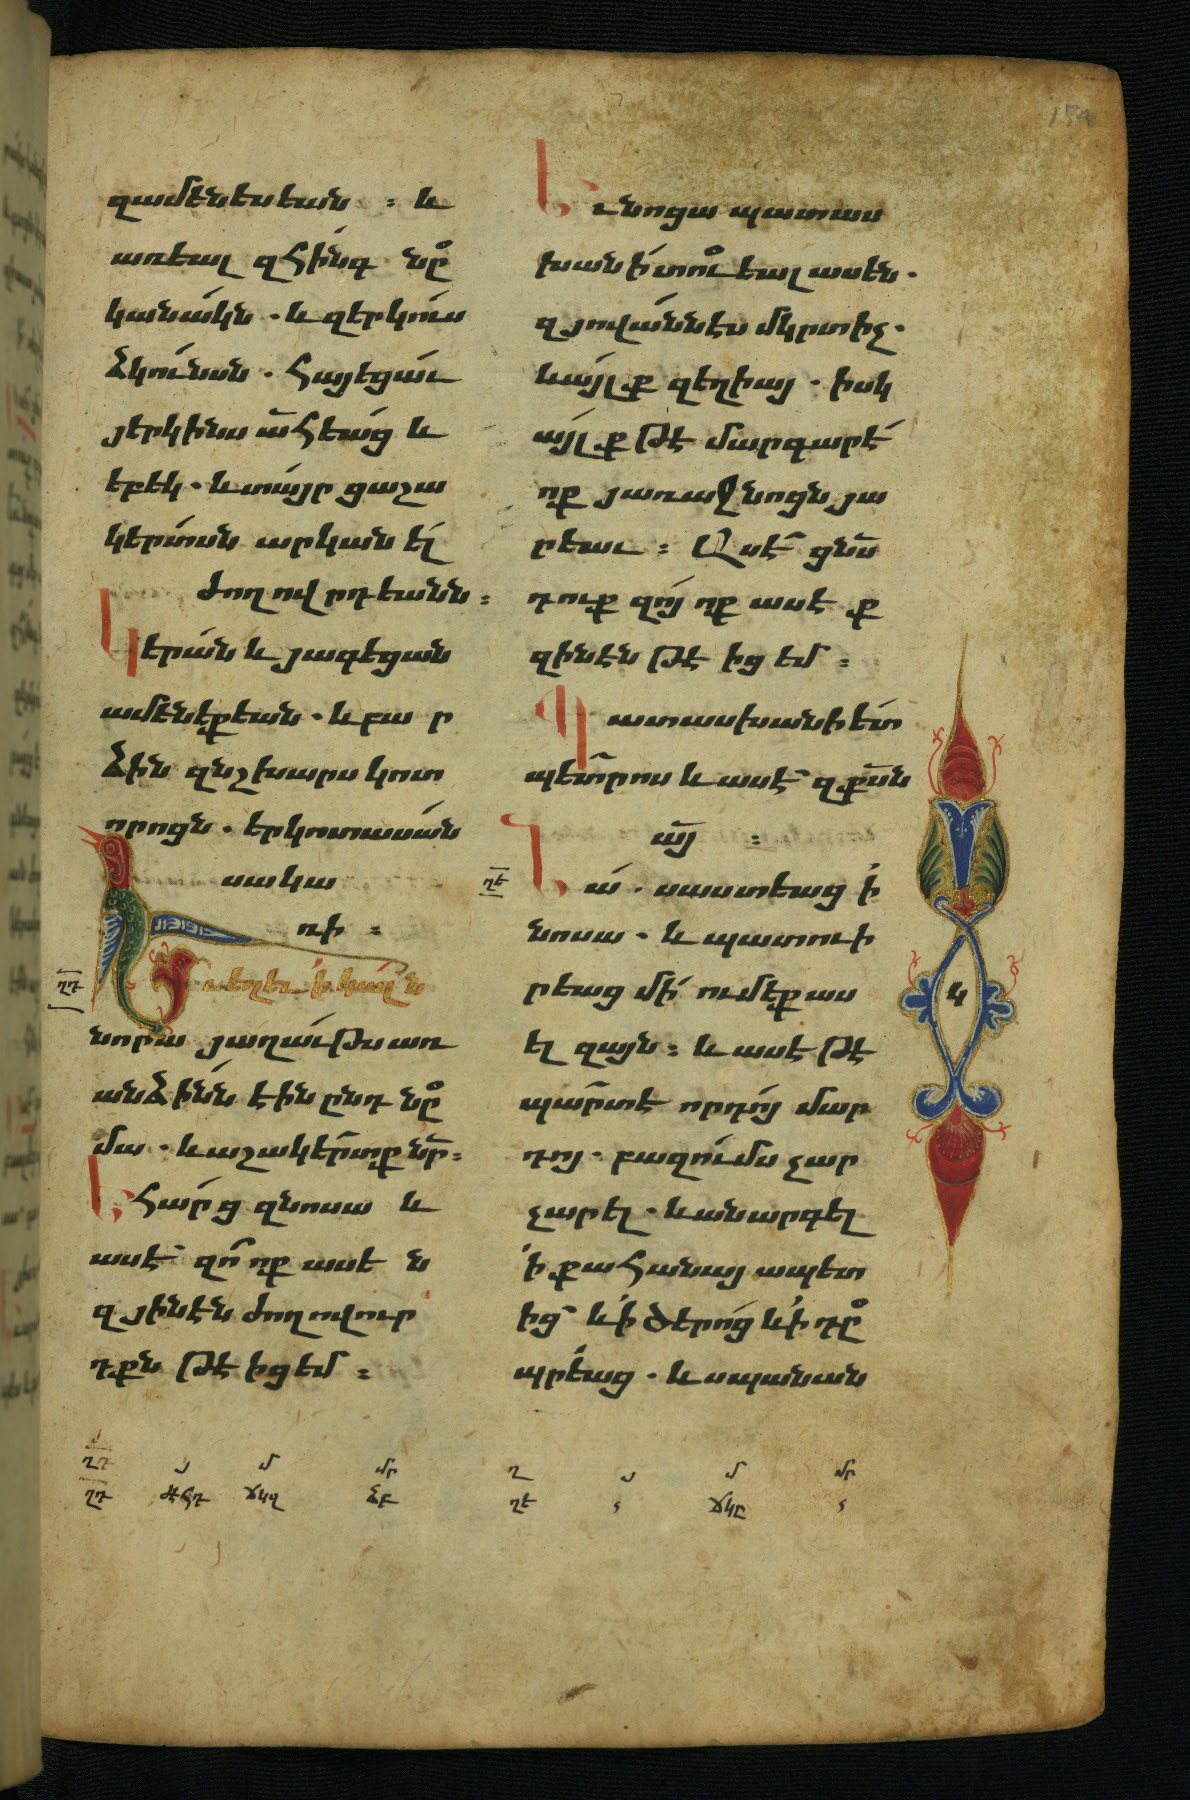 զամենեսեան ։ և
առեալ զհինգ նը
կանակն . և զերկուս
ձկունսն . հայեցաւ
յերկինս ահեաց և
եբեկ . և տայր ցաշա
կերտսն արկանել
ժողովրդեանն ։
Կերան և յագեցան
ամենեքեան . և բար
ձին զնշխարս կոտ
որոցն . երկոտասան
սակա
ռի ։
Եւ եղև ի կալն
նորա յաղաւթս առ
անձինն էին ընդ նը
մա . և աշակերտքն նր ։
Եհարց զնոսա և
ասէ զո՞ ոք ասեն
զյինէն ժողովուր
դքն թէ իցեմ ։
Եւ նոցա պատաս
խանի տուեալ ասեն .
զյովաննէս մկրտիչ .
և այլք զեղիայ . իսկ
այլք թէ մարգարէ
ոք յառաջնոցն յա
րեաւ ։ Ասէ ցնս
դուք զոյ ոք ասէք
զինէն թէ իցեմ ։
Պատասխանի ետ
պետրոս և ասէ զքսն
այ ։
Եւ նա . սաստեաց ի
նոսա . և պատուի
րեաց մի ումեք աս
ել զայն ։ և ասէ թէ
պարտէ որդոյ մար
դոյ . բազումս չար
չարել . և անարգել
ի քահանայապետ
իցն և ի ծերոց և ի դը
պրեաց . և սպանան
ղդ
ղե
կ
ղդ
յ
մ
մր
ղ
յ
մ
մր
ղդ
ճկզ
ձբ
ղե
ճկը